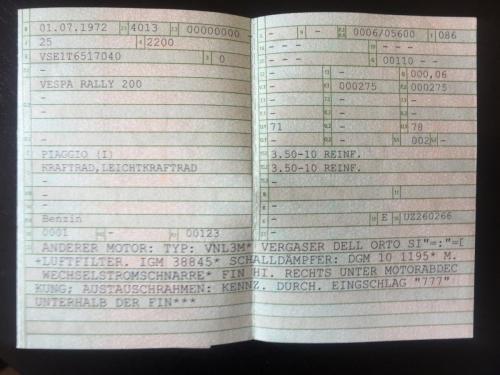 01.07.1972 4013 00000000
25 2200
VSE1T6517040 0
-
VESPA RALLY 200
-
-
-
PIAGGIO (I)
KRAFTRAD,LEICHTKRAFTRAD
-
-
-
Benzin
0001 - 00123
- - 0006/05600 086
- - - - - -
- - - 00110 - -
- - 000,06
- 000275 000275
- - -
- - -
71 - 78
- - 002 -
3.50-10 REINF.
3.50-10 REINF.
-
-
-
- E UZ260266
ANDERER MOTOR: TYP: VNL3M* VERGASER DELL ORTO SI"=:"=[
*LUFTFILTER. IGM 38845* SCHALLDÄMPFER: DGM 10 1195* M.
WECHSELSTROMSCHNARRE* FIN HI. RECHTS UNTER MOTORABDEC
KUNG; AUSTAUSCHRAHMEN: KENNZ. DURCH. EINGSCHLAG "777"
UNTERHALB DER FIN***